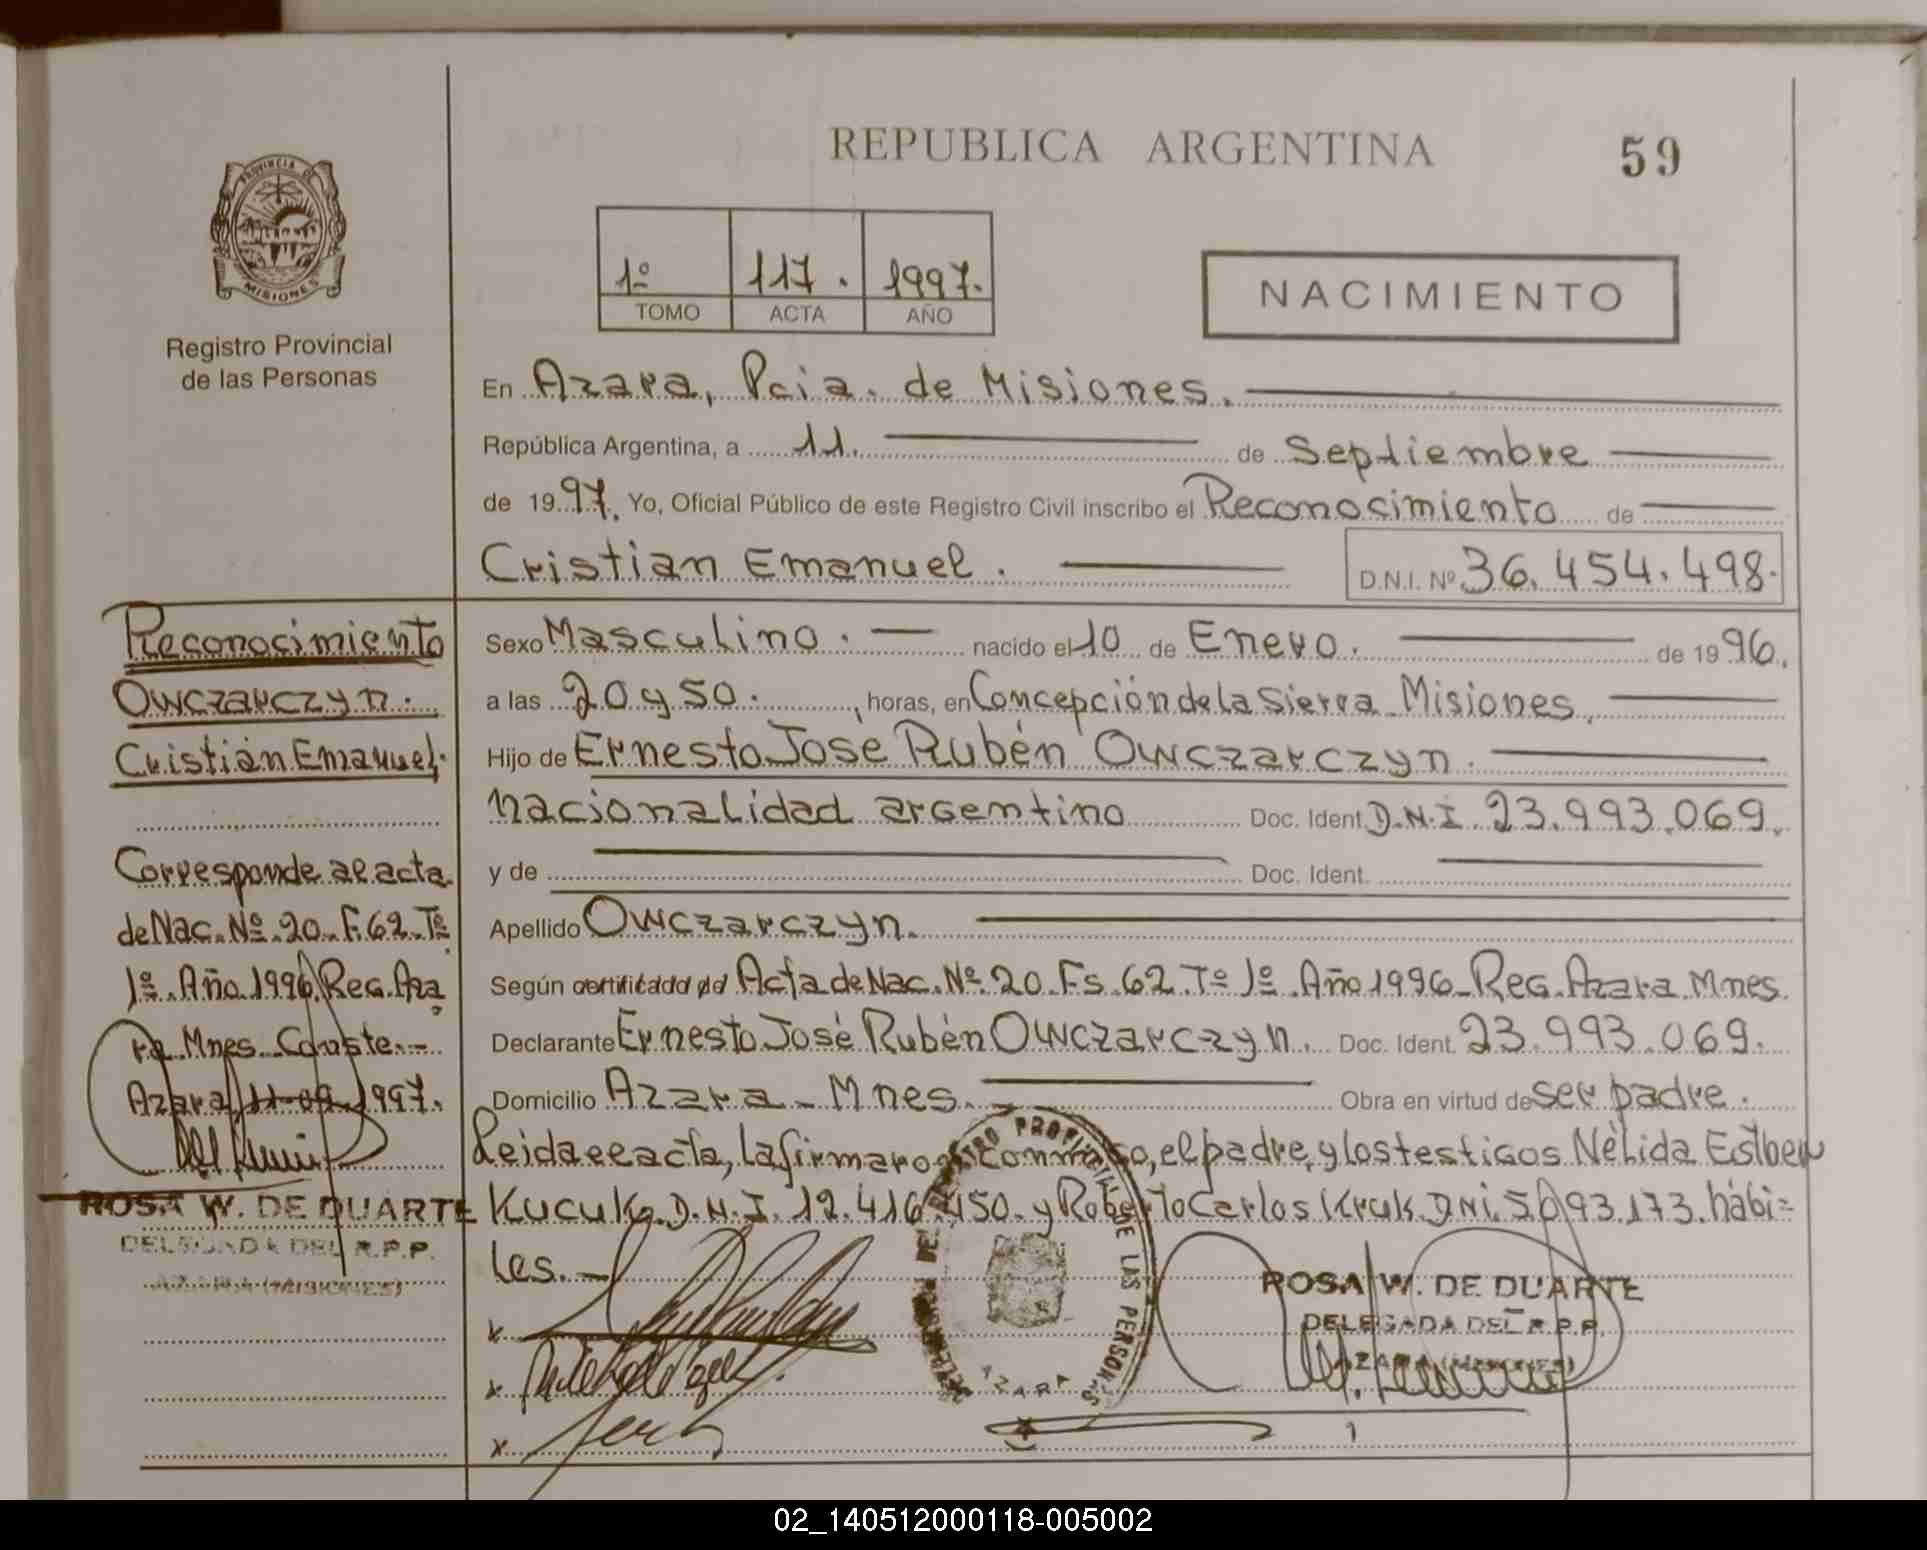 REPUBLICA ARGENTINA
59
PROVINCIA DE
MISIONES
Registro Provincial
de las Personas
1º 117. 1997.
TOMO ACTA AÑO
NACIMIENTO
En Azara, Pcia. de Misiones.
República Argentina, a 11. de Septiembre
de 1997. Yo, Oficial Público de este Registro Civil inscribo el Reconocimiento de
Cristian Emanuel. D.N.I. Nº 36.454.498.
Sexo Masculino. nacido el 10 de Enero. de 1996.
a las 20 y 50. horas, en Concepción de la Sierra Misiones.
Hijo de Ernesto José Rubén Owczarczyn.
nacionalidad argentino Doc. Ident. D.N.I. 23.993.069.
y de Doc. Ident.
Apellido Owczarczyn.
Según certificado del Acta de Nac. Nº 20 Fs. 62 Tº 1º Año 1996 Reg. Azara Mnes.
Declarante Ernesto José Rubén Owczarczyn. Doc. Ident. 23.993.069.
Domicilio Azara - Mnes. Obra en virtud de ser padre.
Leida el acta, la firmaron conmigo, el padre, y los testigos Nélida Esther
Kucuk D.N.I. 12.416.450. y Roberto Carlos Kruk D.N.I. 93.173. hábi=
les.-
Reconocimiento
Owczarczyn.
Cristián Emanuel.
Corresponde al acta
de Nac. Nº 20 F. 62 Tº
1º Año 1996 Reg. Aza
ra Mnes. Conste.-
Azara, 11-09-1997.
ROSA W. DE DUARTE
DELEGADA DEL R.P.P.
AZARA (MISIONES)
PROVINCIAL DE LAS PERSONAS
AZARA
ROSA W. DE DUARTE
DELEGADA DEL R.P.P.
AZARA (MISIONES)
02_140512000118-005002